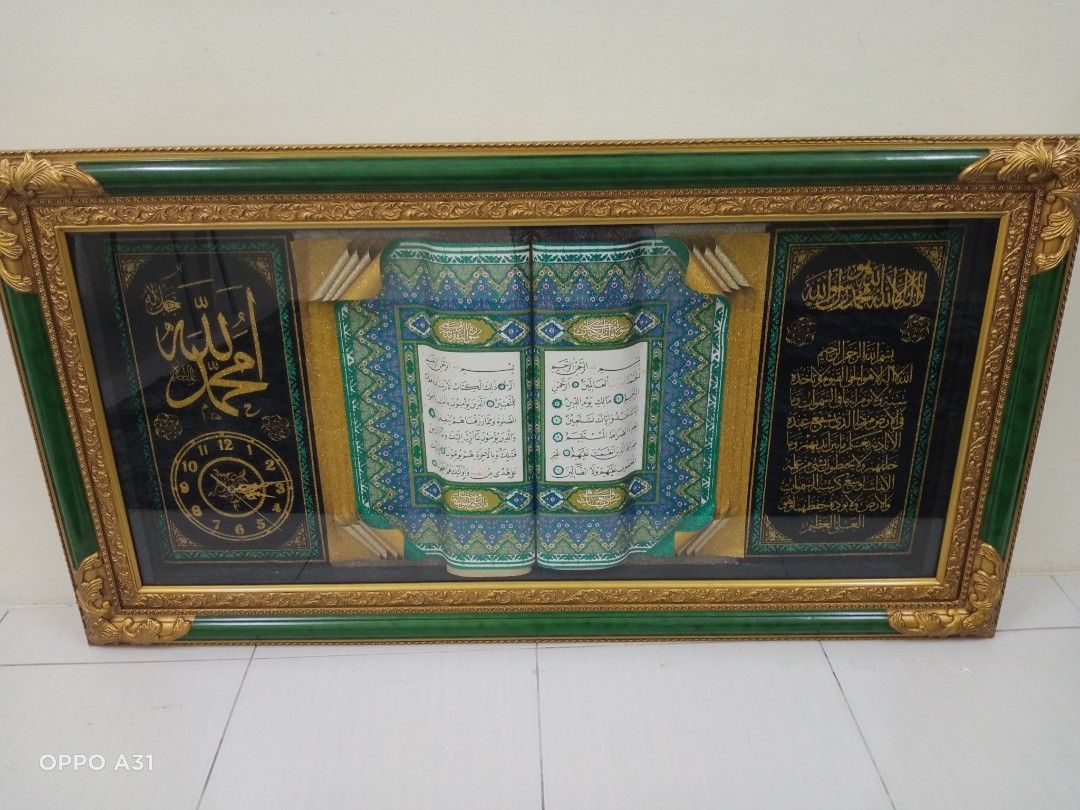 لا اله الا الله محمد رسول الله
بسم الله الرحمن الرحيم
الله لا اله الا هو الحي القيوم لا تأخذه
سنة ولا نوم له ما في السموات وما
في الارض من ذا الذي يشفع عنده
الا باذنه يعلم ما بين ايديهم وما
خلفهم ولا يحيطون بشيء من علمه
الا بما شاء وسع كرسيه السموات
والارض ولا يؤده حفظهما وهو
العلي العظيم
بسم الله الرحمن الرحيم
الحمد لله رب العالمين الرحمن
الرحيم مالك يوم الدين
اياك نعبد واياك نستعين
اهدنا الصراط المستقيم
صراط الذين انعمت عليهم غير
المغضوب عليهم ولا الضالين
بسم الله الرحمن الرحيم
الم ذلك الكتاب لا ريب فيه هدى
للمتقين الذين يؤمنون بالغيب ويقيمون
الصلوة ومما رزقناهم ينفقون
والذين يؤمنون بما انزل اليك وما انزل من
قبلك وبالآخرة هم يوقنون اولئك
على هدى من ربهم واولئك هم المفلحون
الله جل جلاله
محمد
12
1
2
3
4
5
6
7
8
9
10
11
OPPO A31